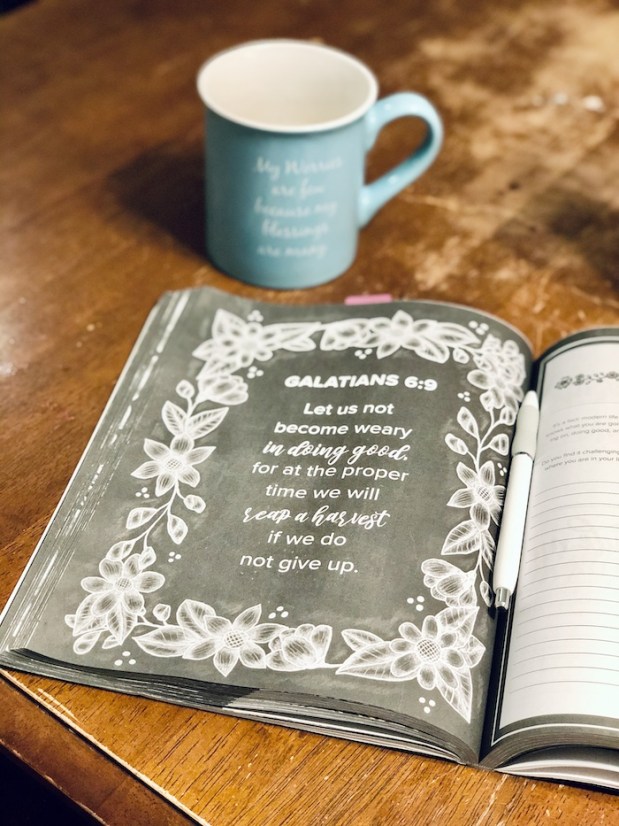 My Worries
are few
because my
blessings
are many.
GALATIANS 6:9
Let us not
become weary
in doing good,
for at the proper
time we will
reap a harvest
if we do
not give up.